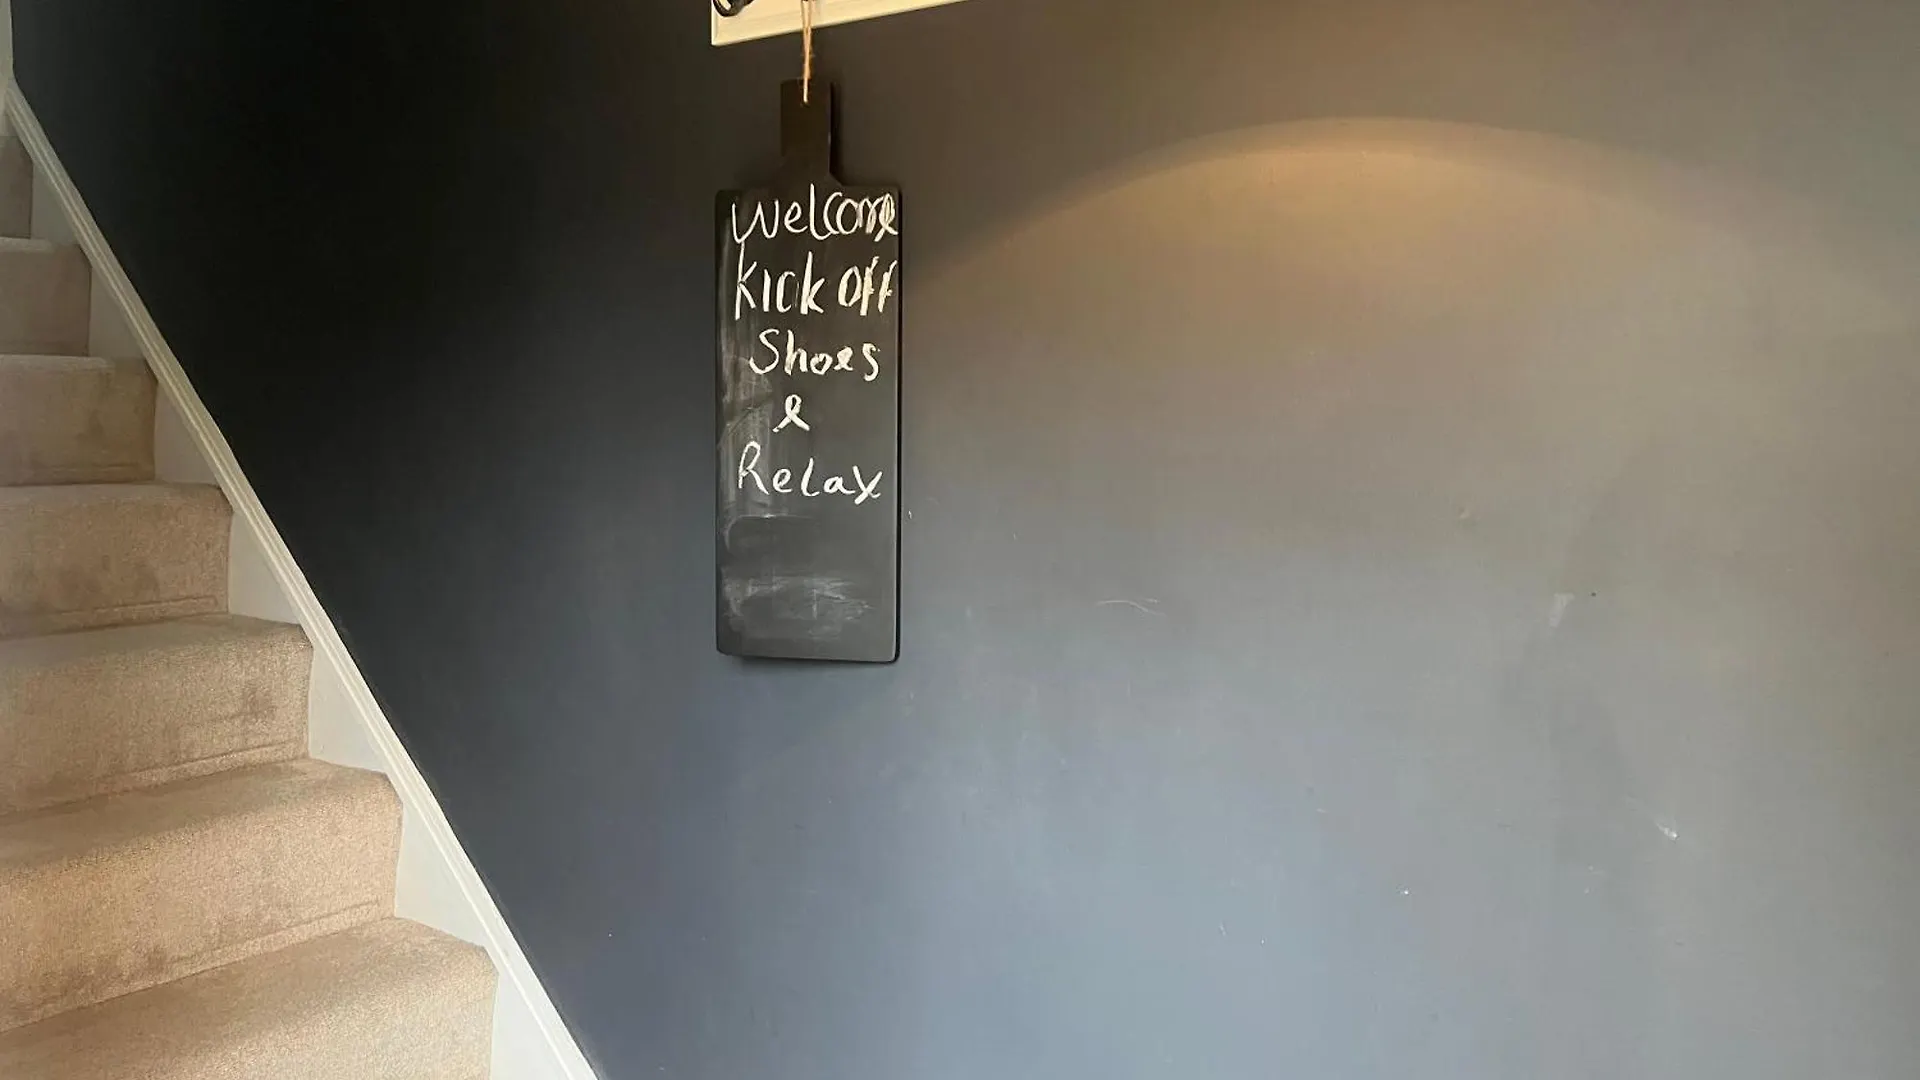 Welcome
Kick off
Shoes
&
Relax